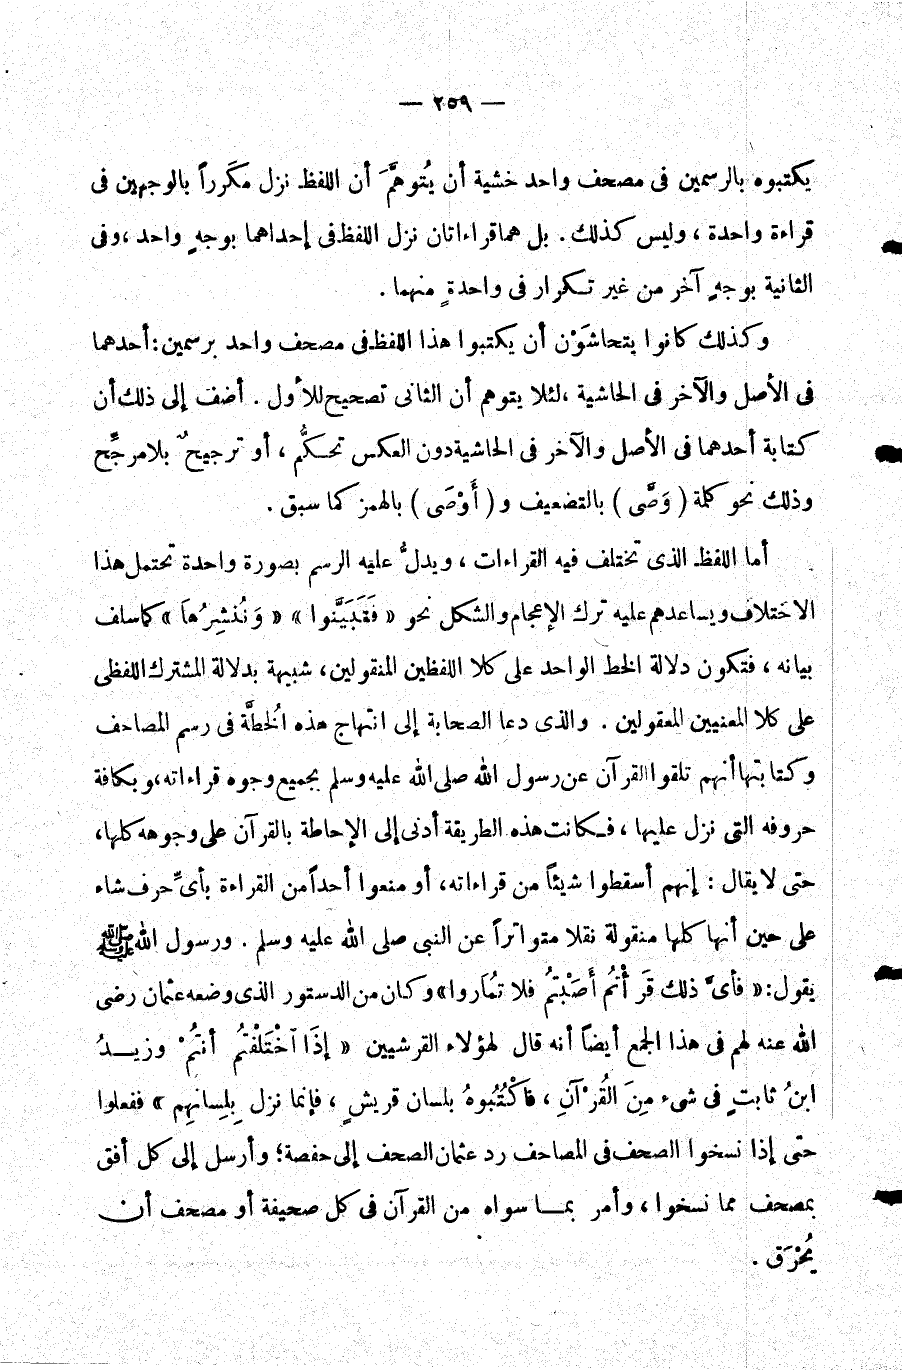 — ٢٥٩ —
يكتبوه بالرسمين فى مصحف واحد خشية أن يُتوهمَّ أن اللفظ نزل مكَرراً بالوجهين فى
قراءة واحدة ، وليس كذلك . بل هما قراءاتان نزل اللفظ فى إحداهما بوجهٍ واحد ، وفى
الثانية بوجهٍ آخر من غير تكرار فى واحدةٍ منهما .
وكذلك كانوا يتحاشَوْن أن يكتبوا هذا اللفظ فى مصحف واحد برسمين : أحدهما
فى الأصل والآخر فى الحاشية ، لئلا يتوهم أن الثانى تصحيح للأول . أضف إلى ذلك أن
كتابة أحدهما فى الأصل والآخر فى الحاشية دون العكس تحكُّم ، أو ترجيحٌ بلا مرجِّح
وذلك نحو كلمة ( وَصَّى ) بالتضعيف و ( أَوْصَى ) بالهمز كما سبق .
أما اللفظ الذى تختلف فيه القراءات ، ويدلُّ عليه الرسم بصورة واحدة تحتمل هذا
الاختلاف ويساعدهم عليه ترك الإعجام والشكل نحو « فَتَبَيَّنوا » « وَنُنْشِرُهَا » كما سلف
بيانه ، فتكون دلالة الخط الواحد على كلا اللفظين المنقولين ، شبيهة بدلالة المشترك اللفظى
على كلا المعنيين المعقولين . والذى دعا الصحابة إلى انتهاج هذه الُخطَّة فى رسم المصاحف
وكتابتها أنهم تلقوا القرآن عن رسول الله صلى الله عليه وسلم بجميع وجوه قراءاته ، وبكافة
حروفه التى نزل عليها ، فكانت هذه الطريقة أدنى إلى الإحاطة بالقرآن على وجوهه كلها ،
حتى لا يقال : إنهم أسقطوا شيئاً من قراءاته ، أو منعوا أحداً من القراءة بأىِّ حرف شاء
على حين أنها كلها منقولة نقلا متواتراً عن النبى صلى الله عليه وسلم . ورسول الله ﷺ
يقول : « فأىَّ ذلك قَرَأْتُم أَصَبْتُم فلا تُمَاروا » وكان من الدستور الذى وضعه عثمان رضى
الله عنه لهم فى هذا الجمع أيضاً أنه قال لهؤلاء القرشيين « إذَا آخْتَلَفْتُم أنتُمْ وزيدُ
ابنُ ثابتٍ فى شىء مِنَ القُرْآنِ ، فاَكْتُبُوهُ بلسان قريشٍ ، فإنما نزل بِلِسانِهِم » ففعلوا
حتى إذا نسخوا الصحف فى المصاحف رد عثمان الصحف إلى حفصة؛ وأرسل إلى كل أفق
بمصحف مما نسخوا ، وأمر بما سواه من القرآن فى كل صحيفة أو مصحف أن
يُحْرَق .